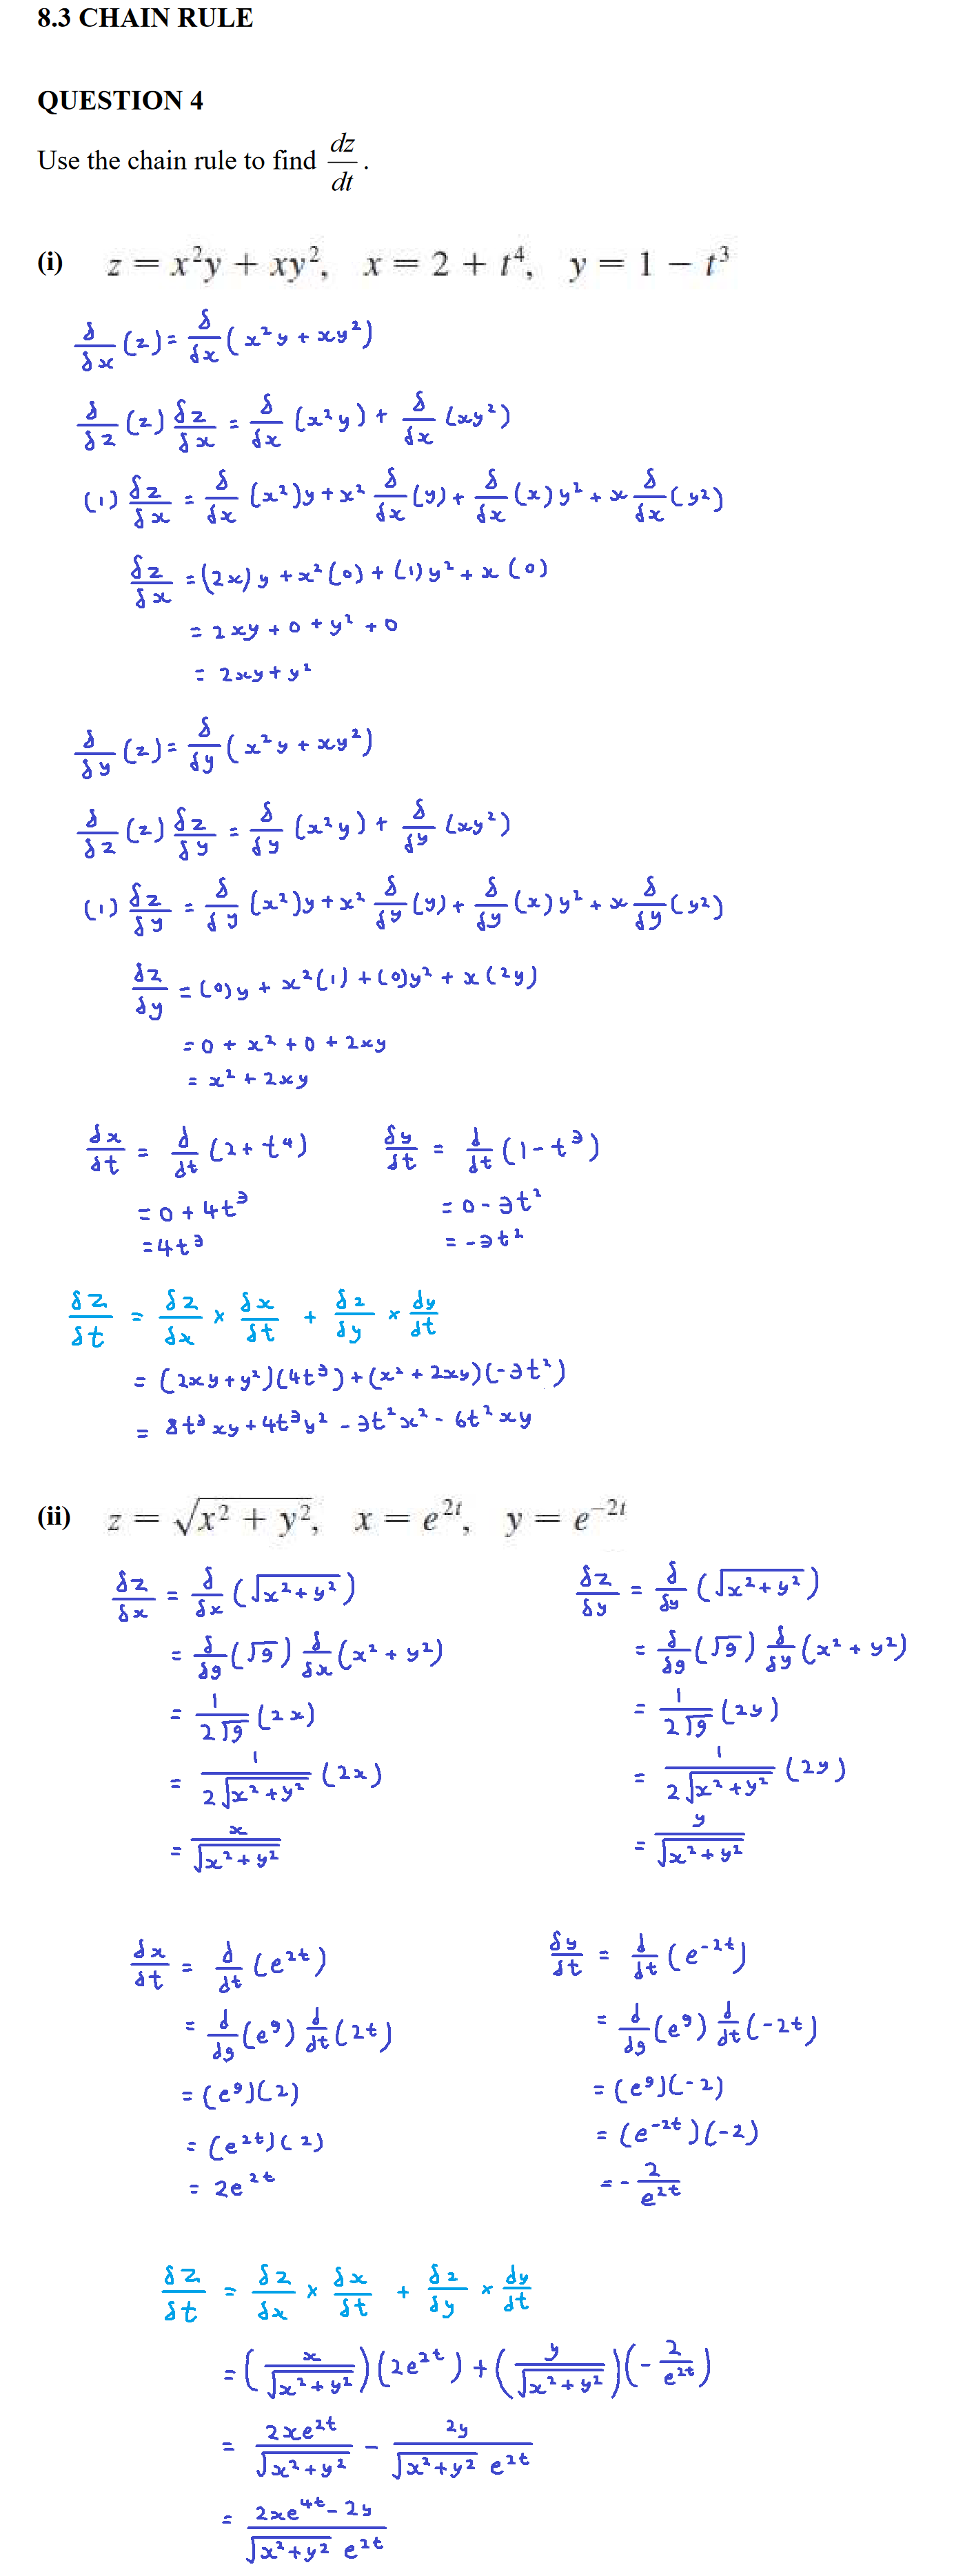 8.3 CHAIN RULE
QUESTION 4
Use the chain rule to find dz/dt.
(i) z = x²y + xy², x = 2 + t⁴, y = 1 − t³
δ/δx (z) = δ/δx (x²y + xy²)
δ/δz (z) δz/δx = δ/δx (x²y) + δ/δx (xy²)
(1) δz/δx = δ/δx (x²)y + x² δ/δx (y) + δ/δx (x)y² + x δ/δx (y²)
δz/δx = (2x)y + x²(0) + (1)y² + x(0)
= 2xy + 0 + y² + 0
= 2xy + y²
δ/δy (z) = δ/δy (x²y + xy²)
δ/δz (z) δz/δy = δ/δy (x²y) + δ/δy (xy²)
(1) δz/δy = δ/δy (x²)y + x² δ/δy (y) + δ/δy (x)y² + x δ/δy (y²)
δz/δy = (0)y + x²(1) + (0)y² + x(2y)
= 0 + x² + 0 + 2xy
= x² + 2xy
dx/dt = d/dt (2 + t⁴) δy/δt = d/dt (1 - t³)
= 0 + 4t³ = 0 - 3t²
= 4t³ = -3t²
δz/δt = δz/δx × δx/δt + δz/δy × dy/dt
= (2xy + y²)(4t³) + (x² + 2xy)(-3t²)
= 8t³xy + 4t³y² - 3t²x² - 6t²xy
(ii) z = √(x² + y²), x = e²ᵗ, y = e⁻²ᵗ
δz/δx = δ/δx (√(x² + y²)) δz/δy = δ/δy (√(x² + y²))
= δ/δg (√g) δ/δx (x² + y²) = δ/δg (√g) δ/δy (x² + y²)
= 1/(2√g) (2x) = 1/(2√g) (2y)
= 1/(2√(x² + y²)) (2x) = 1/(2√(x² + y²)) (2y)
= x/√(x² + y²) = y/√(x² + y²)
dx/dt = d/dt (e²ᵗ) δy/δt = d/dt (e⁻²ᵗ)
= d/dg (eᵍ) d/dt (2t) = d/dg (eᵍ) d/dt (-2t)
= (eᵍ)(2) = (eᵍ)(-2)
= (e²ᵗ)(2) = (e⁻²ᵗ)(-2)
= 2e²ᵗ = - 2/e²ᵗ
δz/δt = δz/δx × δx/δt + δz/δy × dy/dt
= (x/√(x² + y²))(2e²ᵗ) + (y/√(x² + y²))(- 2/e²ᵗ)
= 2xe²ᵗ/√(x² + y²) - 2y/(√(x² + y²) e²ᵗ)
= (2xe⁴ᵗ - 2y)/(√(x² + y²) e²ᵗ)